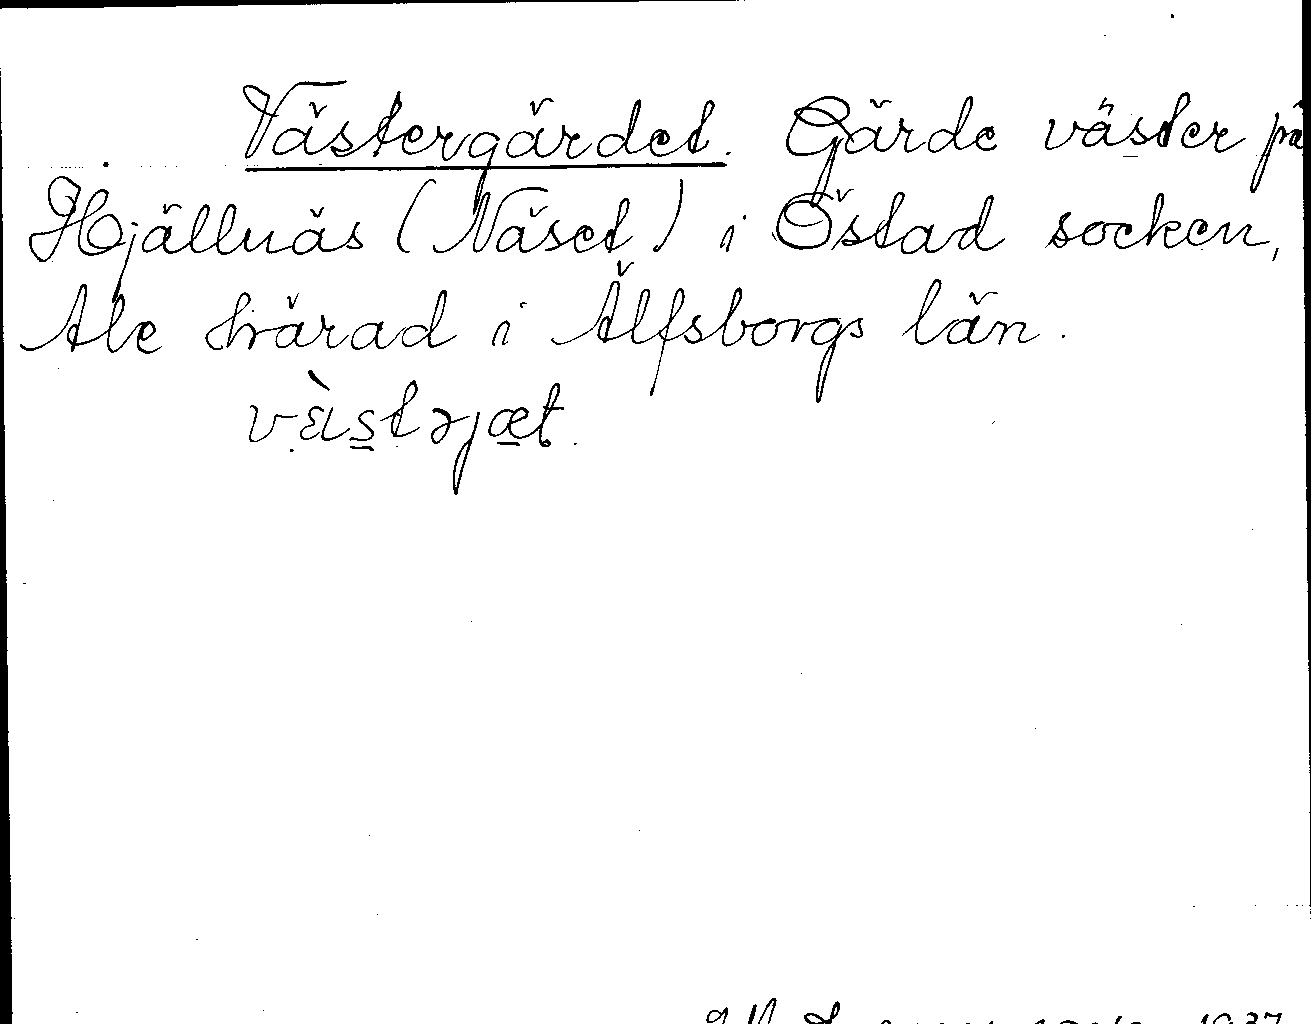 Västergärdet. Gärde väster på
Hjällnäs (Näset) i Östad socken,
Ale härad i Älfsborgs län.
vɛ̀ıstəjæt.
1937